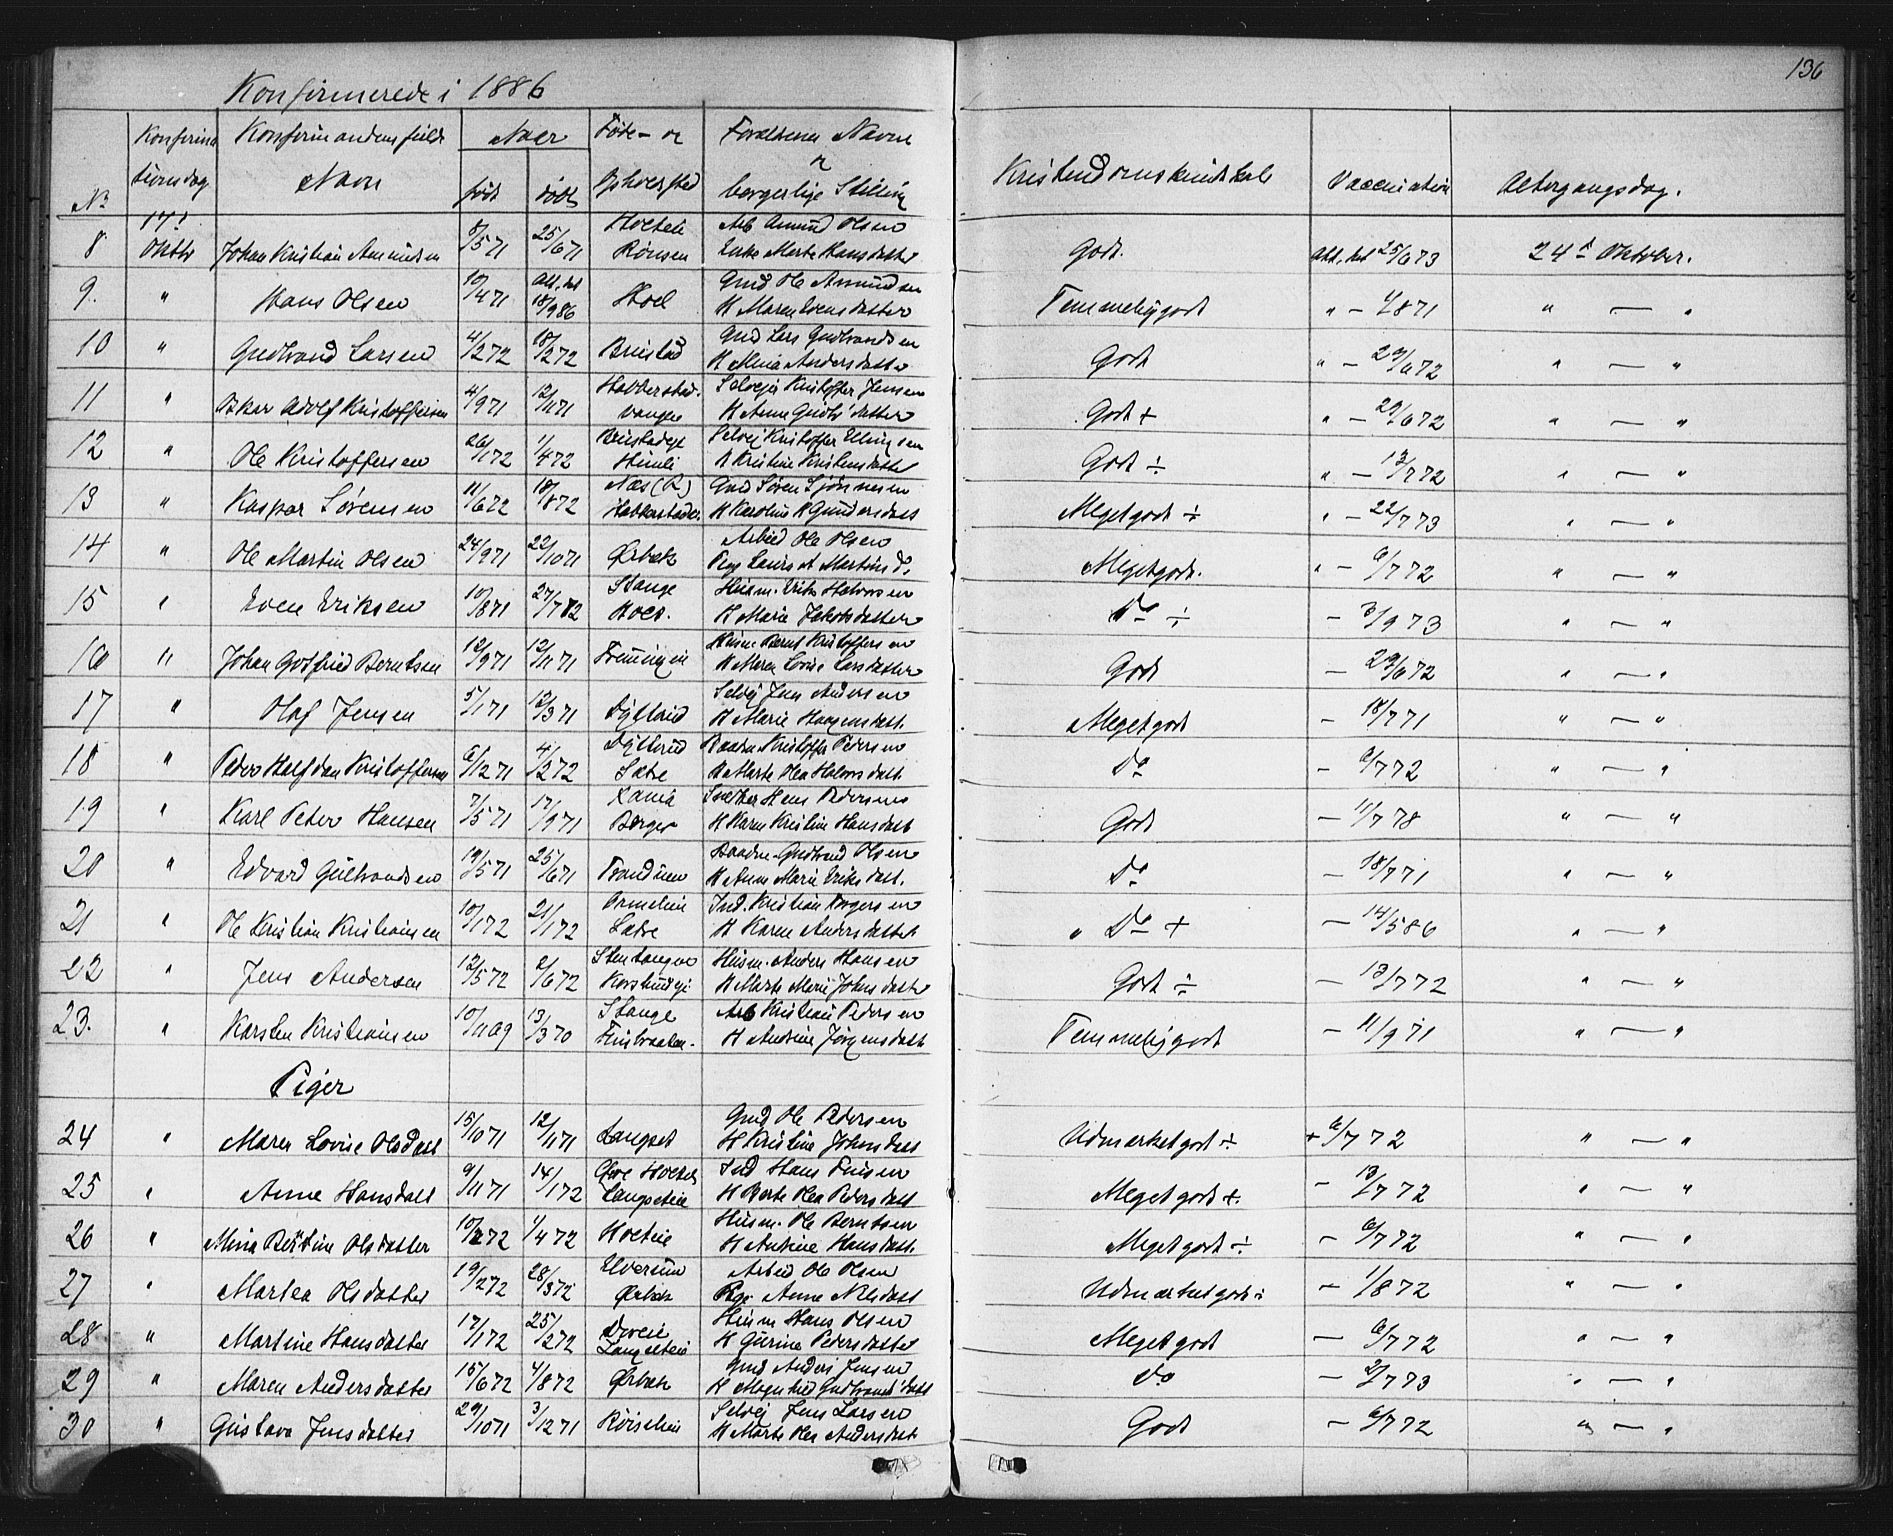 136
Konfirmerede i 1886
No Konfirmationsdag Konfirmandens fulde Navn Naar født døbt Føde- og Opholdssted Forældrenes Navne og borgerlige Stilling Kristendomskundskab Vaccination Altergangsdag.
8 17d Oktbr Johan Kristian Amundsen 8/5 71 25/6 71 Hoelseie Rønsen Arb Amund Olsen Enke Marte Hansdatter Godt. Att. het 25/6 73 24d Oktober.
9. " Hans Olsen 10/4 71 Att. het 18/9 86 Hoel Grd Ole Amundsen H Maren Evensdatter Temmelig godt " — 4/8 71 " — "
10 " Gudbrand Larsen 4/2 72 18/2 72 Brustad Grd Lars Gudbrandsen H Mina Andersdatter Godt " — 29/6 72 " — "
11 " Oskar Adolf Kristoffersen 4/9 71 12/11 71 Habberstad. Selvejer Kristoffer Jensen H Anne Gudbr'datter Godt + " — 29/6 72 " — "
12 " Ole Kristoffersen 26/1 72 1/4 72 Brustadeje Himli Selvej Kristoffer Ellingsen H Kristine Kristensdatter Godt ÷ " — 13/7 72 " — "
13 " Kaspar Sørensen 11/6 72 18/8 72 Næs (R) Habberstad. Grd Søren H Karoline Gundersdatt Meget godt ÷ " — 22/7 73 " — "
14 " Ole Martin Olsen 24/9 71 22/10 71 Ørbæk Arbeid Ole Olsen Pige Martins d. Meget godt. " — 6/7 72 " — "
15 " Even Eriksen 10/8 71 27/7 82 Stange Hoel. Husm. Erik Halvorsen H Marie Jakobsdatter Do ÷ — 3/9 73 " — "
16 " Johan Gotfried Berntsen 12/9 71 12/11 71 Husm Bernt Kristoffersen H Maren Lovise Larsdatter Godt — 29/6 72 " — "
17 " Olaf Jensen 5/1 71 12/3 71 Dyttrud Selvej Jens Andersen H Marie Haagensdatt. Meget godt — 18/7 71 " — "
18 " Peder Halfdan Kristoffersen 6/12 71 4/2 72 Dyttrud Sætre Kristoffer Pedersen H Marte Olea Halvorsdatt Do — 6/7 72 " — "
19 " Karl Peter Hansen 7/5 71 17/9 71 Berger Snedker Hans Pedersen H Karen Kristine Hansdatt Godt — 11/7 78 " — "
20 " Edvard Gulbrandsen 19/5 71 25/6 71 Trandum Baadsm. Gudbrand Olsen H Anne Marie Eriksdatt. Do — 18/7 71 " — "
21 " Ole Kristian Kristiansen 10/1 72 21/1 72 Sætre Ind. Kristian Borgersen H Karen Andersdatter " Do + — 14/5 86 " — "
22 " Jens Andersen 12/5 72 2/6 72 Stensangen Husm. Anders Hansen H Marte Marie Johnsdatter Godt ÷ — 13/7 72 " — "
23. " Karsten Kristiansen 10/11 69 13/3 70 Stange Finbraaten. Arb Kristian Pedersen H Andrine Jørgensdatt Temmelig godt — 11/9 71 " — "
Piger
24 " Maren Lovise Olsdatt 15/10 71 12/11 71 Langset Grd Ole Pedersen H Kristine Johnsdatt Udmærket godt ÷ + 6/7 72 " — "
25 " Anne Hansdatt 9/11 71 14/1 72 Langseteie Ind Hans Finsen H Berte Olea Pedersdatt Meget godt +. — 13/7 72 " — "
26 " Mina Bertine Olsdatter 10/2 72 1/4 72 Hoeleie Husm. Ole Berntsen H Antine Hansdatt. Meget godt ÷ — 6/7 72 " — "
27 " Martea Olsdatter 19/2 72 28/3 72 Elverum Ørbæk Arbeid Ole Olsen Pige Anne Nilsdatt Udmærket godt ÷ — 1/8 72 " — "
28 " Martine Hansdatter 17/1 72 25/2 72 Langseteie Husm Hans Olsen H Gurine Pedersdatter Meget godt — 6/7 72 " — "
29 " Maren Andersdatter 15/6 72 4/8 72 Ørbæk Grd Anders Jensen H Magnhild Gudbrandsdatt Do — 2/7 73 " — "
30 " Gustava Jensdatter 29/10 71 3/12 71 Røiseieie Selvej Jens Larsen H Marte Olea Andersdatt Godt — 6/7 72 " — "